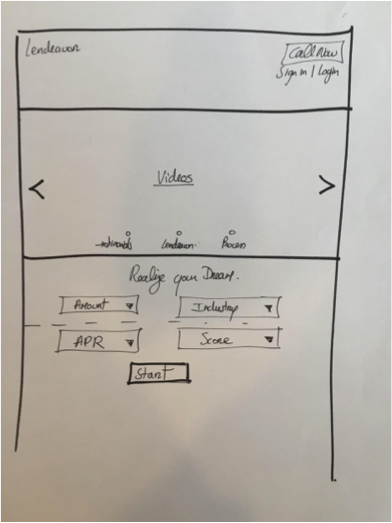 Lendeavor
Call Now
Sign in | Login
Videos
Lendeavor
Process
Realize your Dream.
Amount
Industry
APR
Score
Start